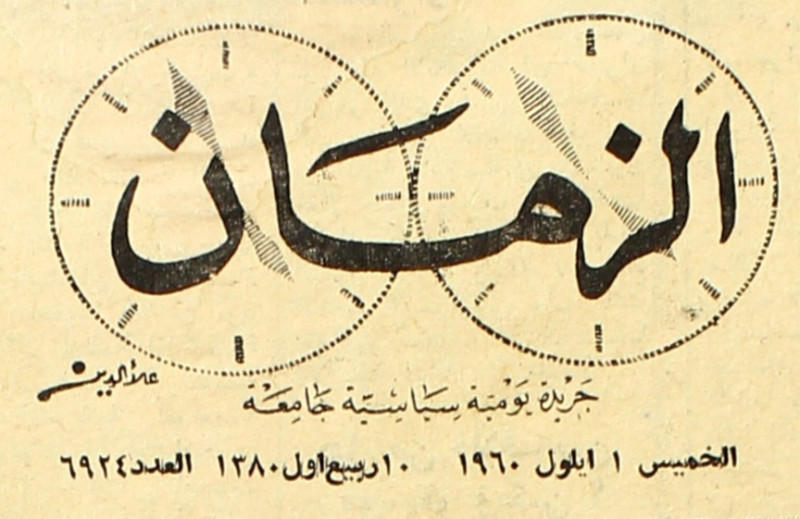 الزمان
علاء الدين
جَريْدة يَوْميّة سيَاسيّة جَامِعَة
الخميس ١ ايلول ١٩٦٠ ١٠ ربيع اول ١٣٨٠ العدد ٦٩٢٤